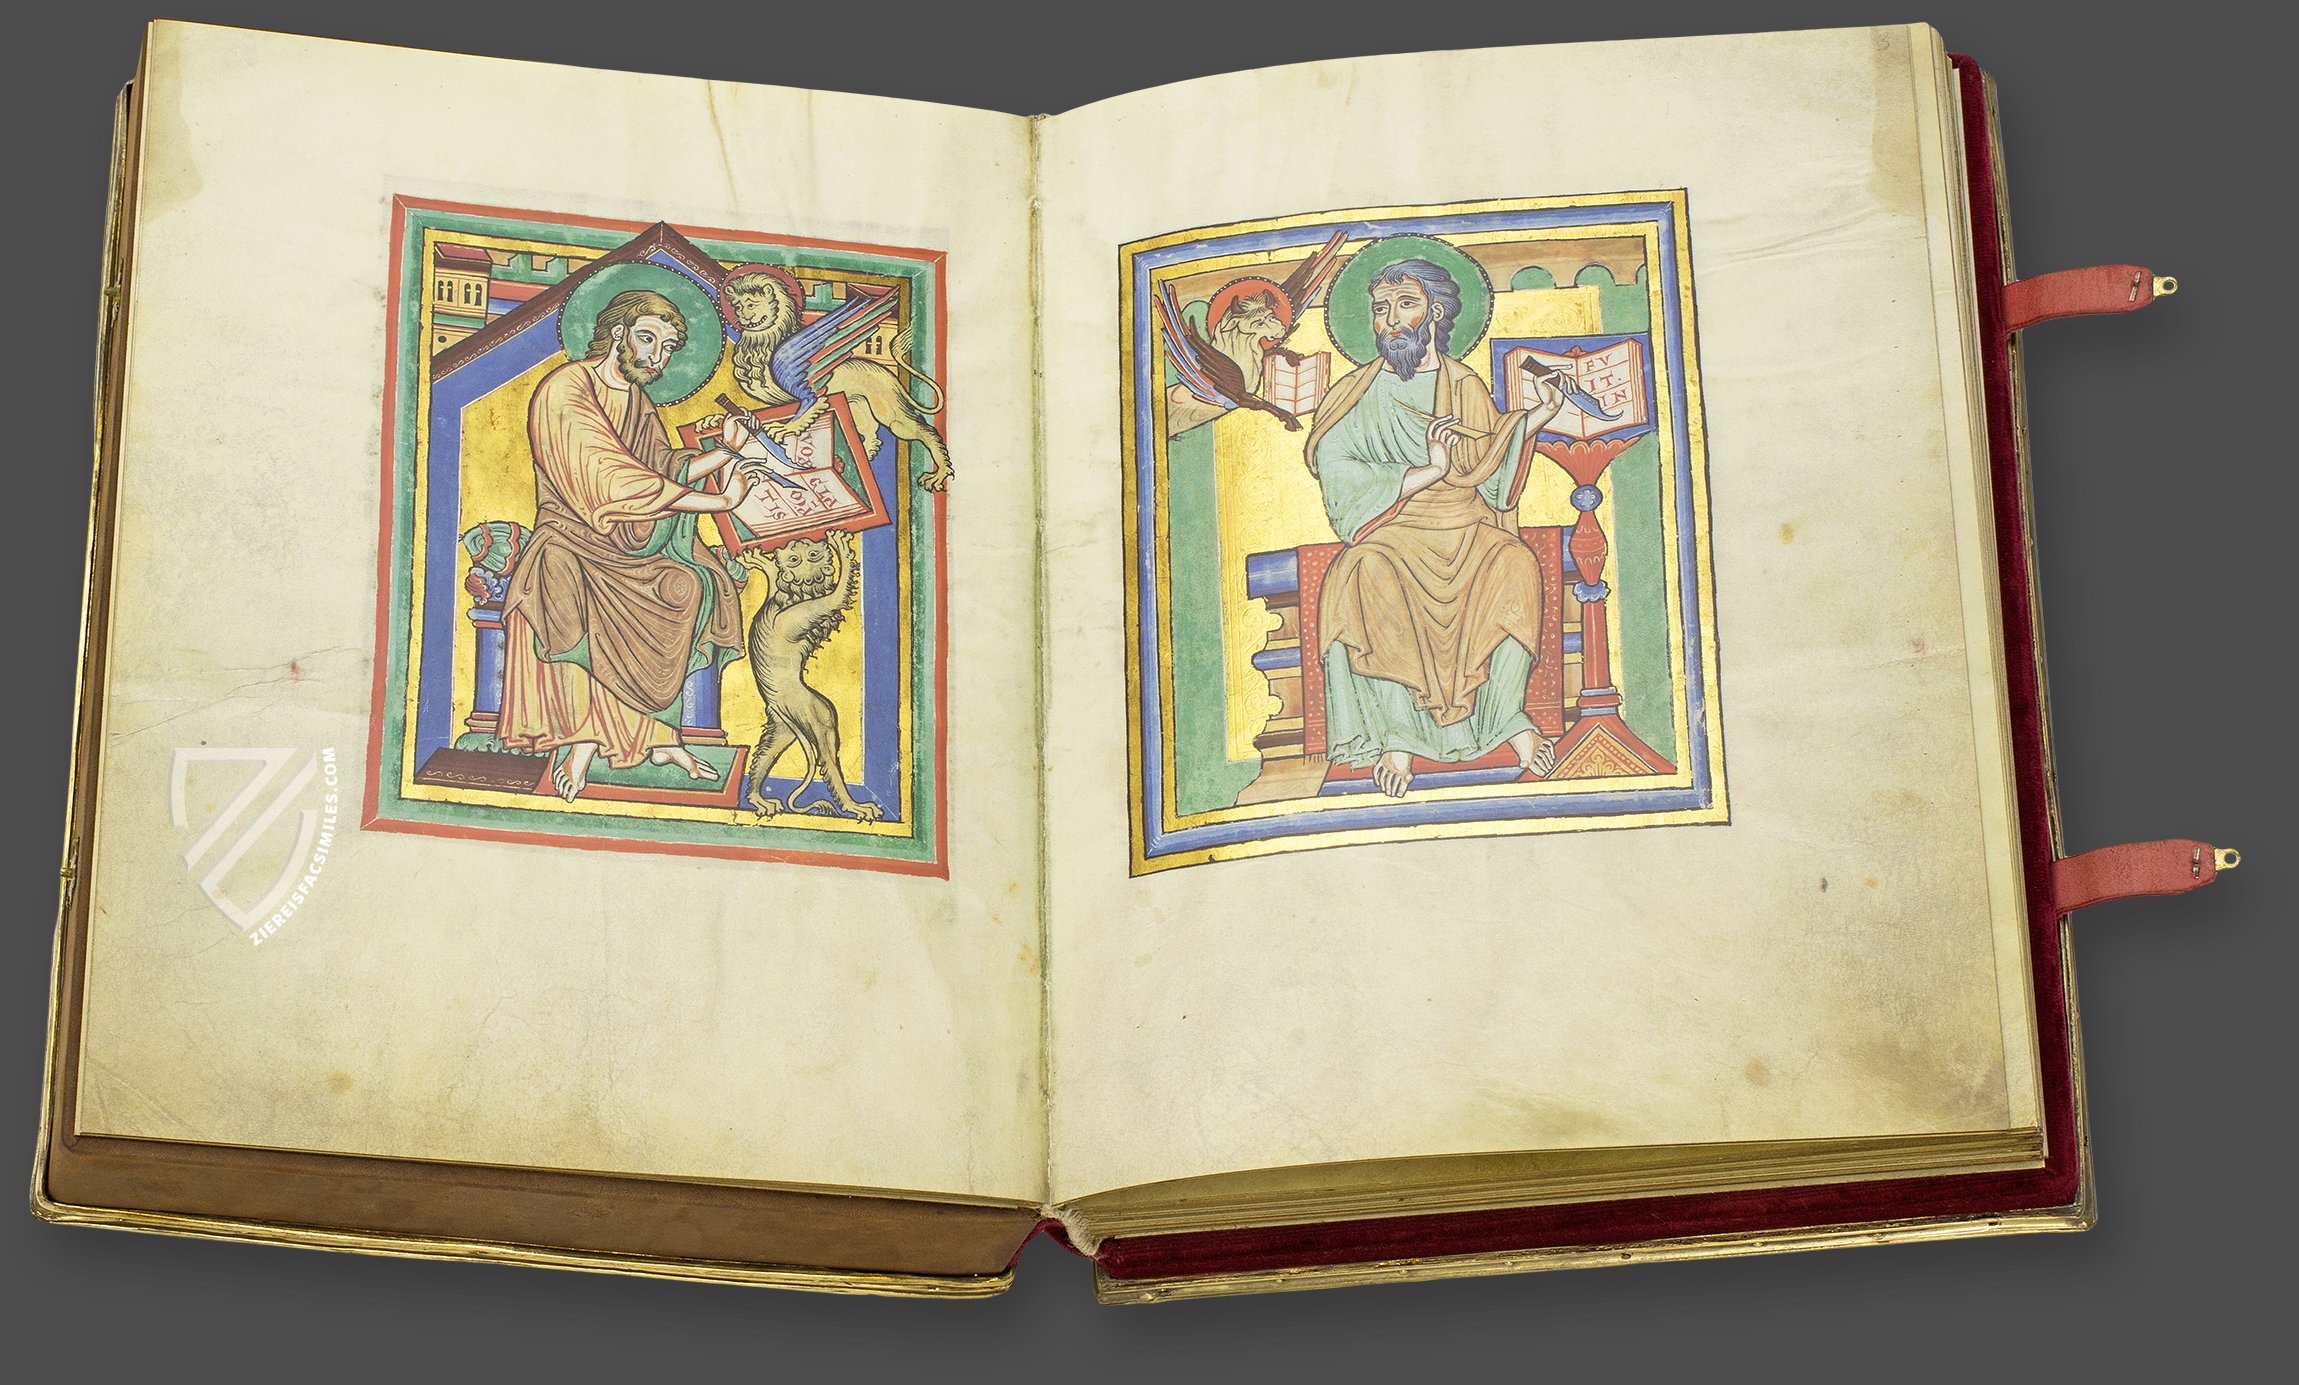 3
VOX
TIS
FV
IT.
IN
ZIEREISFACSIMILES.COM